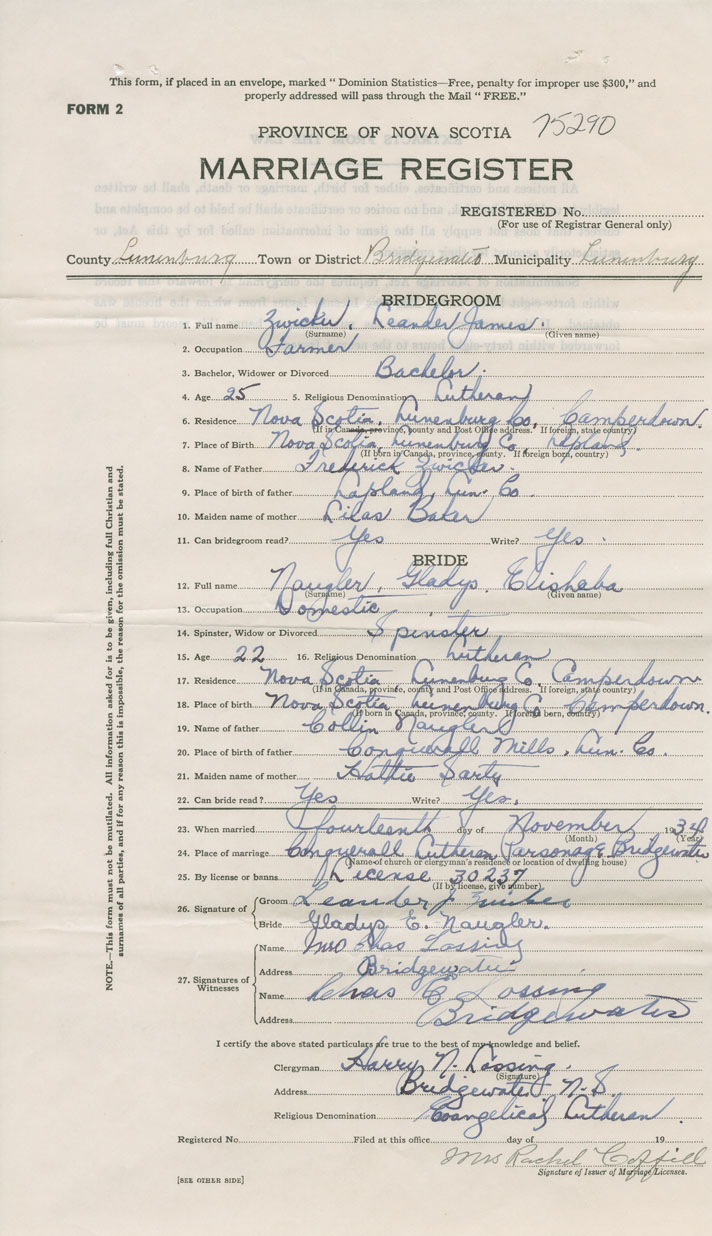 This form, if placed in an envelope, marked " Dominion Statistics—Free, penalty for improper use $300," and
properly addressed will pass through the Mail " FREE."
FORM 2
PROVINCE OF NOVA SCOTIA 75290
MARRIAGE REGISTER
REGISTERED No.
(For use of Registrar General only)
County Lunenburg Town or District Bridgewater Municipality Lunenburg
BRIDEGROOM
1. Full name Zwicker, Leander James.
(Surname) (Given name)
2. Occupation Farmer
3. Bachelor, Widower or Divorced Bachelor.
4. Age 25 5. Religious Denomination Lutheran
6. Residence Nova Scotia, Lunenburg Co, Camperdown.
(If in Canada, province, county and Post Office address. If foreign, state country)
7. Place of Birth Nova Scotia, Lunenburg Co Lapland.
(If born in Canada, province, county. If foreign born, country)
8. Name of Father Frederick Zwicker.
9. Place of birth of father Lapland, Lun. Co.
10. Maiden name of mother Lilas Baker
11. Can bridegroom read? Yes Write? Yes.
BRIDE
12. Full name Naugler, Gladys, Elishaba
(Surname) (Given name)
13. Occupation Domestic
14. Spinster, Widow or Divorced Spinster
15. Age 22 16. Religious Denomination Lutheran
17. Residence Nova Scotia, Lunenburg Co, Camperdown
(If in Canada, province, county and Post Office address. If foreign, state country)
18. Place of birth Nova Scotia Lunenburg Co Camperdown.
(If born in Canada, province, county. If foreign born, country)
19. Name of father Collin Naugler
20. Place of birth of father Conquerall Mills, Lun. Co.
21. Maiden name of mother Hattie Sarty
22. Can bride read? Yes Write? Yes.
23. When married fourteenth day of November 1934
(Month) (Year)
24. Place of marriage Conquerall Lutheran Parsonage Bridgewater
(Name of church or clergyman's residence or location of dwelling house)
25. By license or banns License 30237
(If by license, give number)
26. Signature of
Groom Leander J Zwicker
Bride Gladys E. Naugler.
27. Signatures of Witnesses
Name Mrs Chas Lossing
Address Bridgewater
Name Chas E. Lossing
Address Bridgewater
I certify the above stated particulars are true to the best of my knowledge and belief.
Clergyman Harry N. Lossing.
(Signature)
Address Bridgewater N.S.
Religious Denomination Evangelical Lutheran.
Registered No. Filed at this office day of 19
Mrs Rachel Coffill
Signature of Issuer of Marriage Licenses.
[SEE OTHER SIDE]
NOTE.—This form must not be mutilated. All information asked for is to be given, including full Christian and
surnames of all parties, and if for any reason this is impossible, the reason for the omission must be stated.